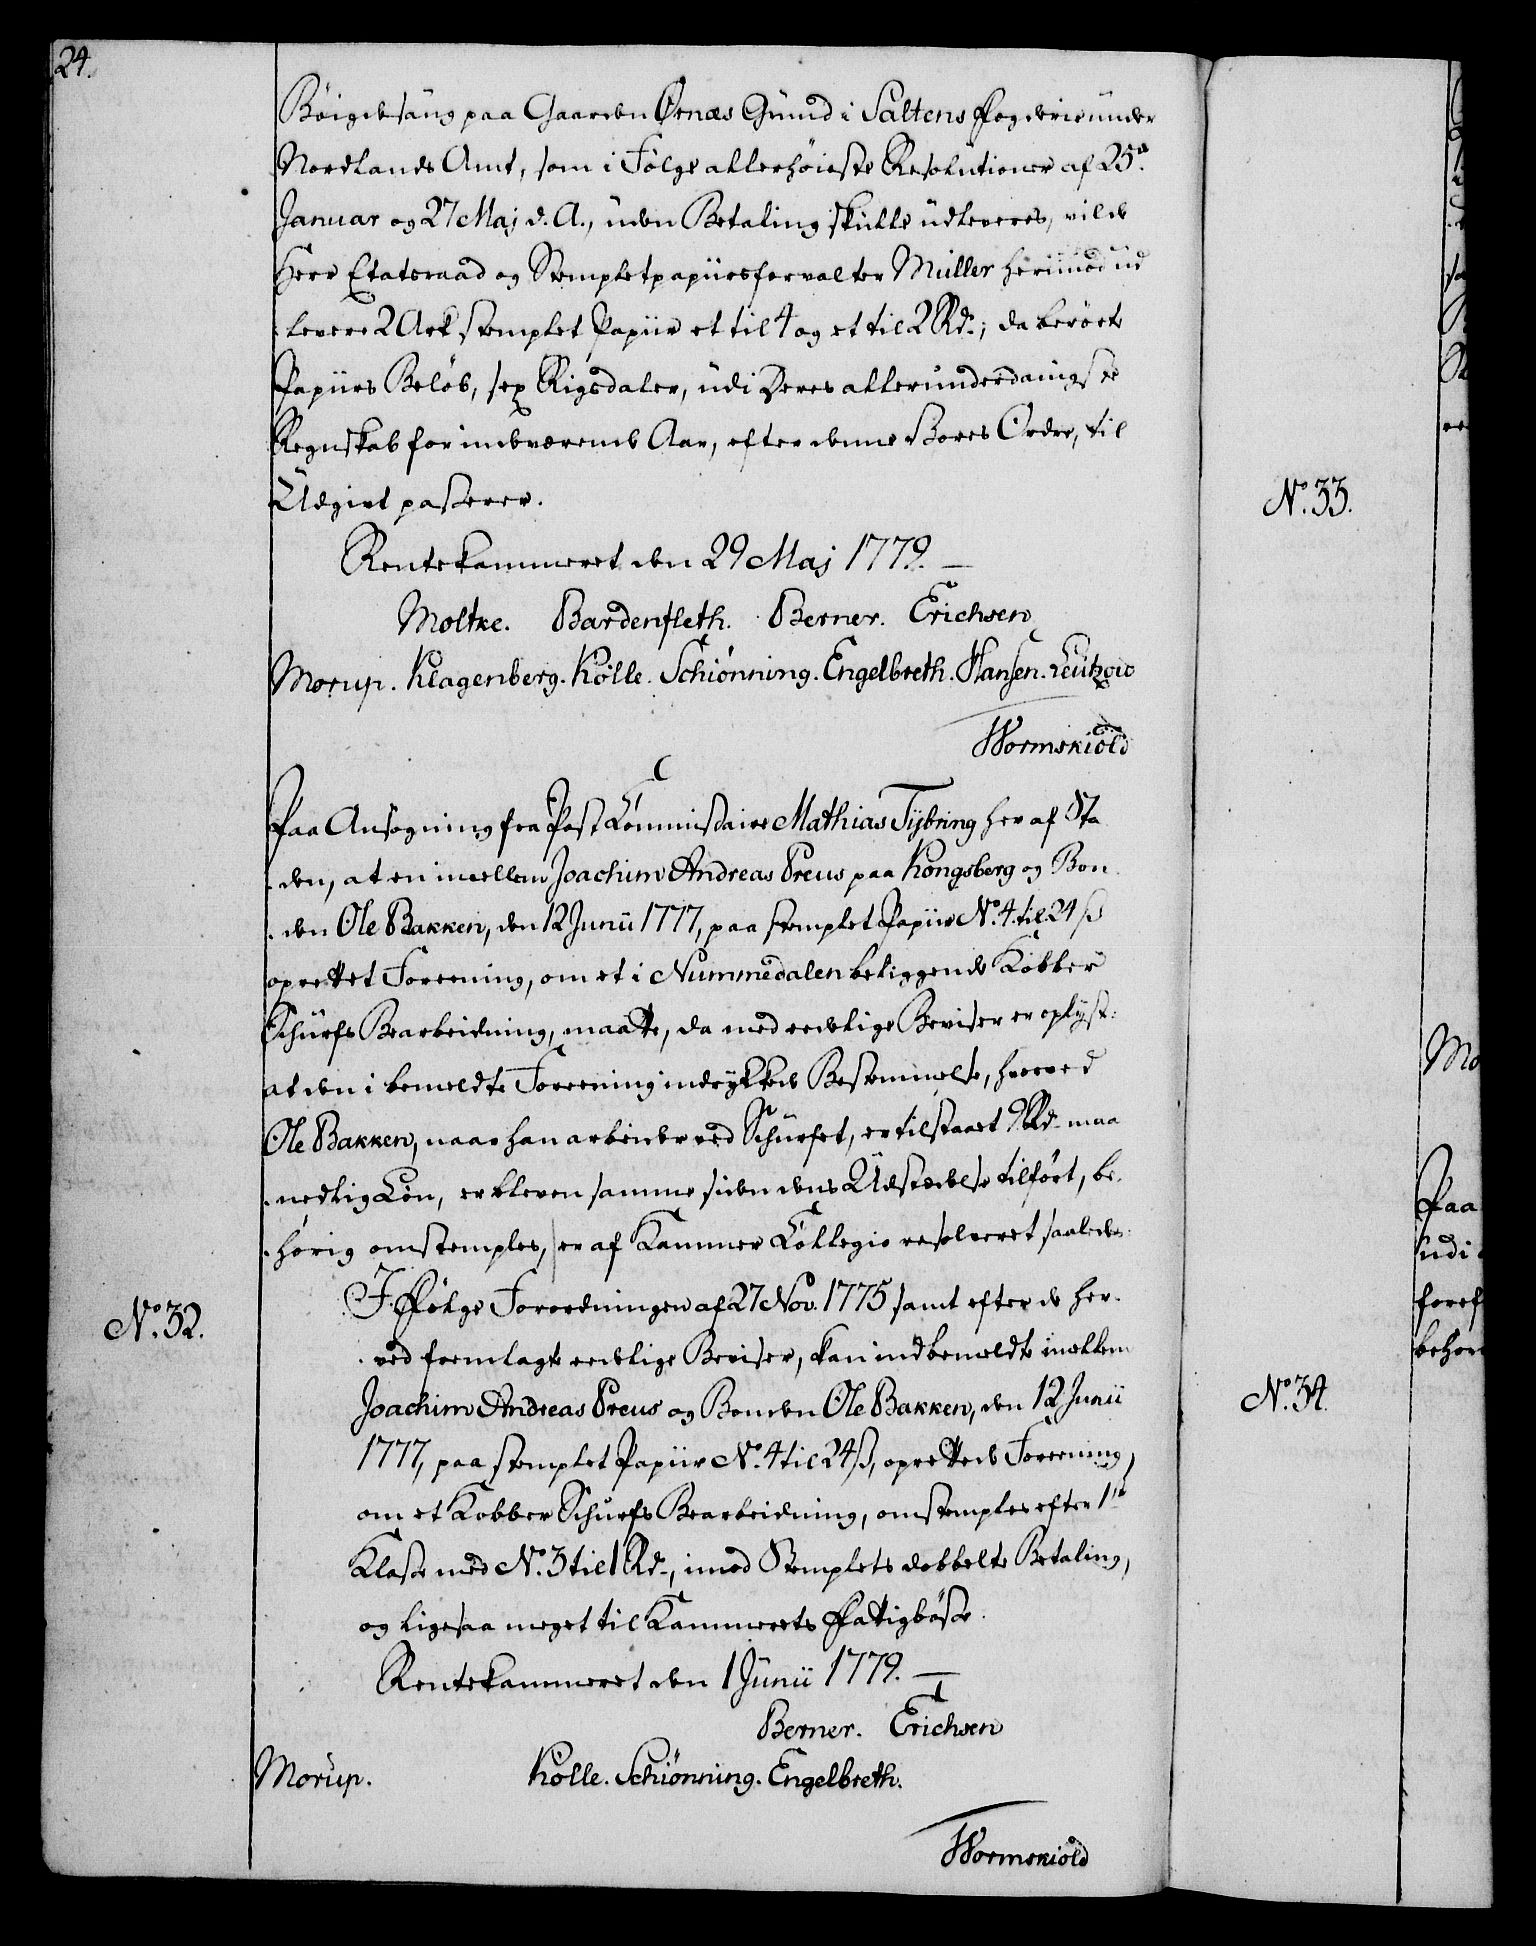 24.
Böigdsaug paa Gaarden Ørnæs Grund i Saltens Fogderie under
Nordlands Amt, som i Følge allerhøieste Resolutioner af 25de
Januar og 27 Maj d. A., uden Betaling skulle udleveres, vilde
Herr Etatsraad og Stempletpapiirsforvalter Müller herimod ud
levere 2 Ark stemplet Papiir et til 4 og et til 2 Rd.; da berørte
Papiirs Beløb, sex Rigsdaler, udi Deres allerunderdanigste
Regnskab for indeværende Aar, efter denne Vores Ordre, til
Udgivt passerer.
Rentekammeret den 29 Maj 1779.
Moltke. Bardenfleth. Berner. Erichsen
Morup. Klagenberg. Kölle. Schiönning. Engelbreth. Hansen. Leutzow
Wormskiold
Paa Ansøgning fra Post Commissaire Mathias Tybring her af Sta
den, at en imellem Joachim Andreas Preus paa Kongsberg og Bon
den Ole Bakken, den 12 Junii 1777, paa stemplet Papiir No. 4 til 24 ß
oprettet Foreening, om et i Nummedalen beliggende Kobber
Schurfs Bearbeidning, maatte, da med eedelige Beviser er oplyst:
at den i bemeldte Foreening indrykkede Bestemmelse, hvorved
Ole Bakken, naar han arbeider ved Schurfet, er tilstaaet 9 Rd. maa
nedlig Løn, er bleven samme siden dens Udstædelse tilført, be
hørig omstemples, er af Kammer Collegio resolveret saaledes:
No. 32.
I Følge Forordningen af 27 Nov. 1775 samt efter de her
ved fremlagte eedelige Beviser, kan indbemeldte imellem
Joachim Andreas Preus og Bonden Ole Bakken, den 12 Junii
1777, paa stemplet Papiir No. 4 til 24 ß, oprettede Foreening,
om et Kobber Schurfs Bearbeidning, omstemples efter 1te
Klasse med No. 3 til 1 Rd., imod Stemplets dobbelte Betaling,
og ligesaa meget til Kammerets Fattigbøsse.
Rentekammeret den 1 Junii 1779.
Berner. Erichsen
Morup. Kölle. Schiönning. Engelbreth.
Wormskiold
No. 33.
No. 34.
Mo
Paa
udi
foref
behør